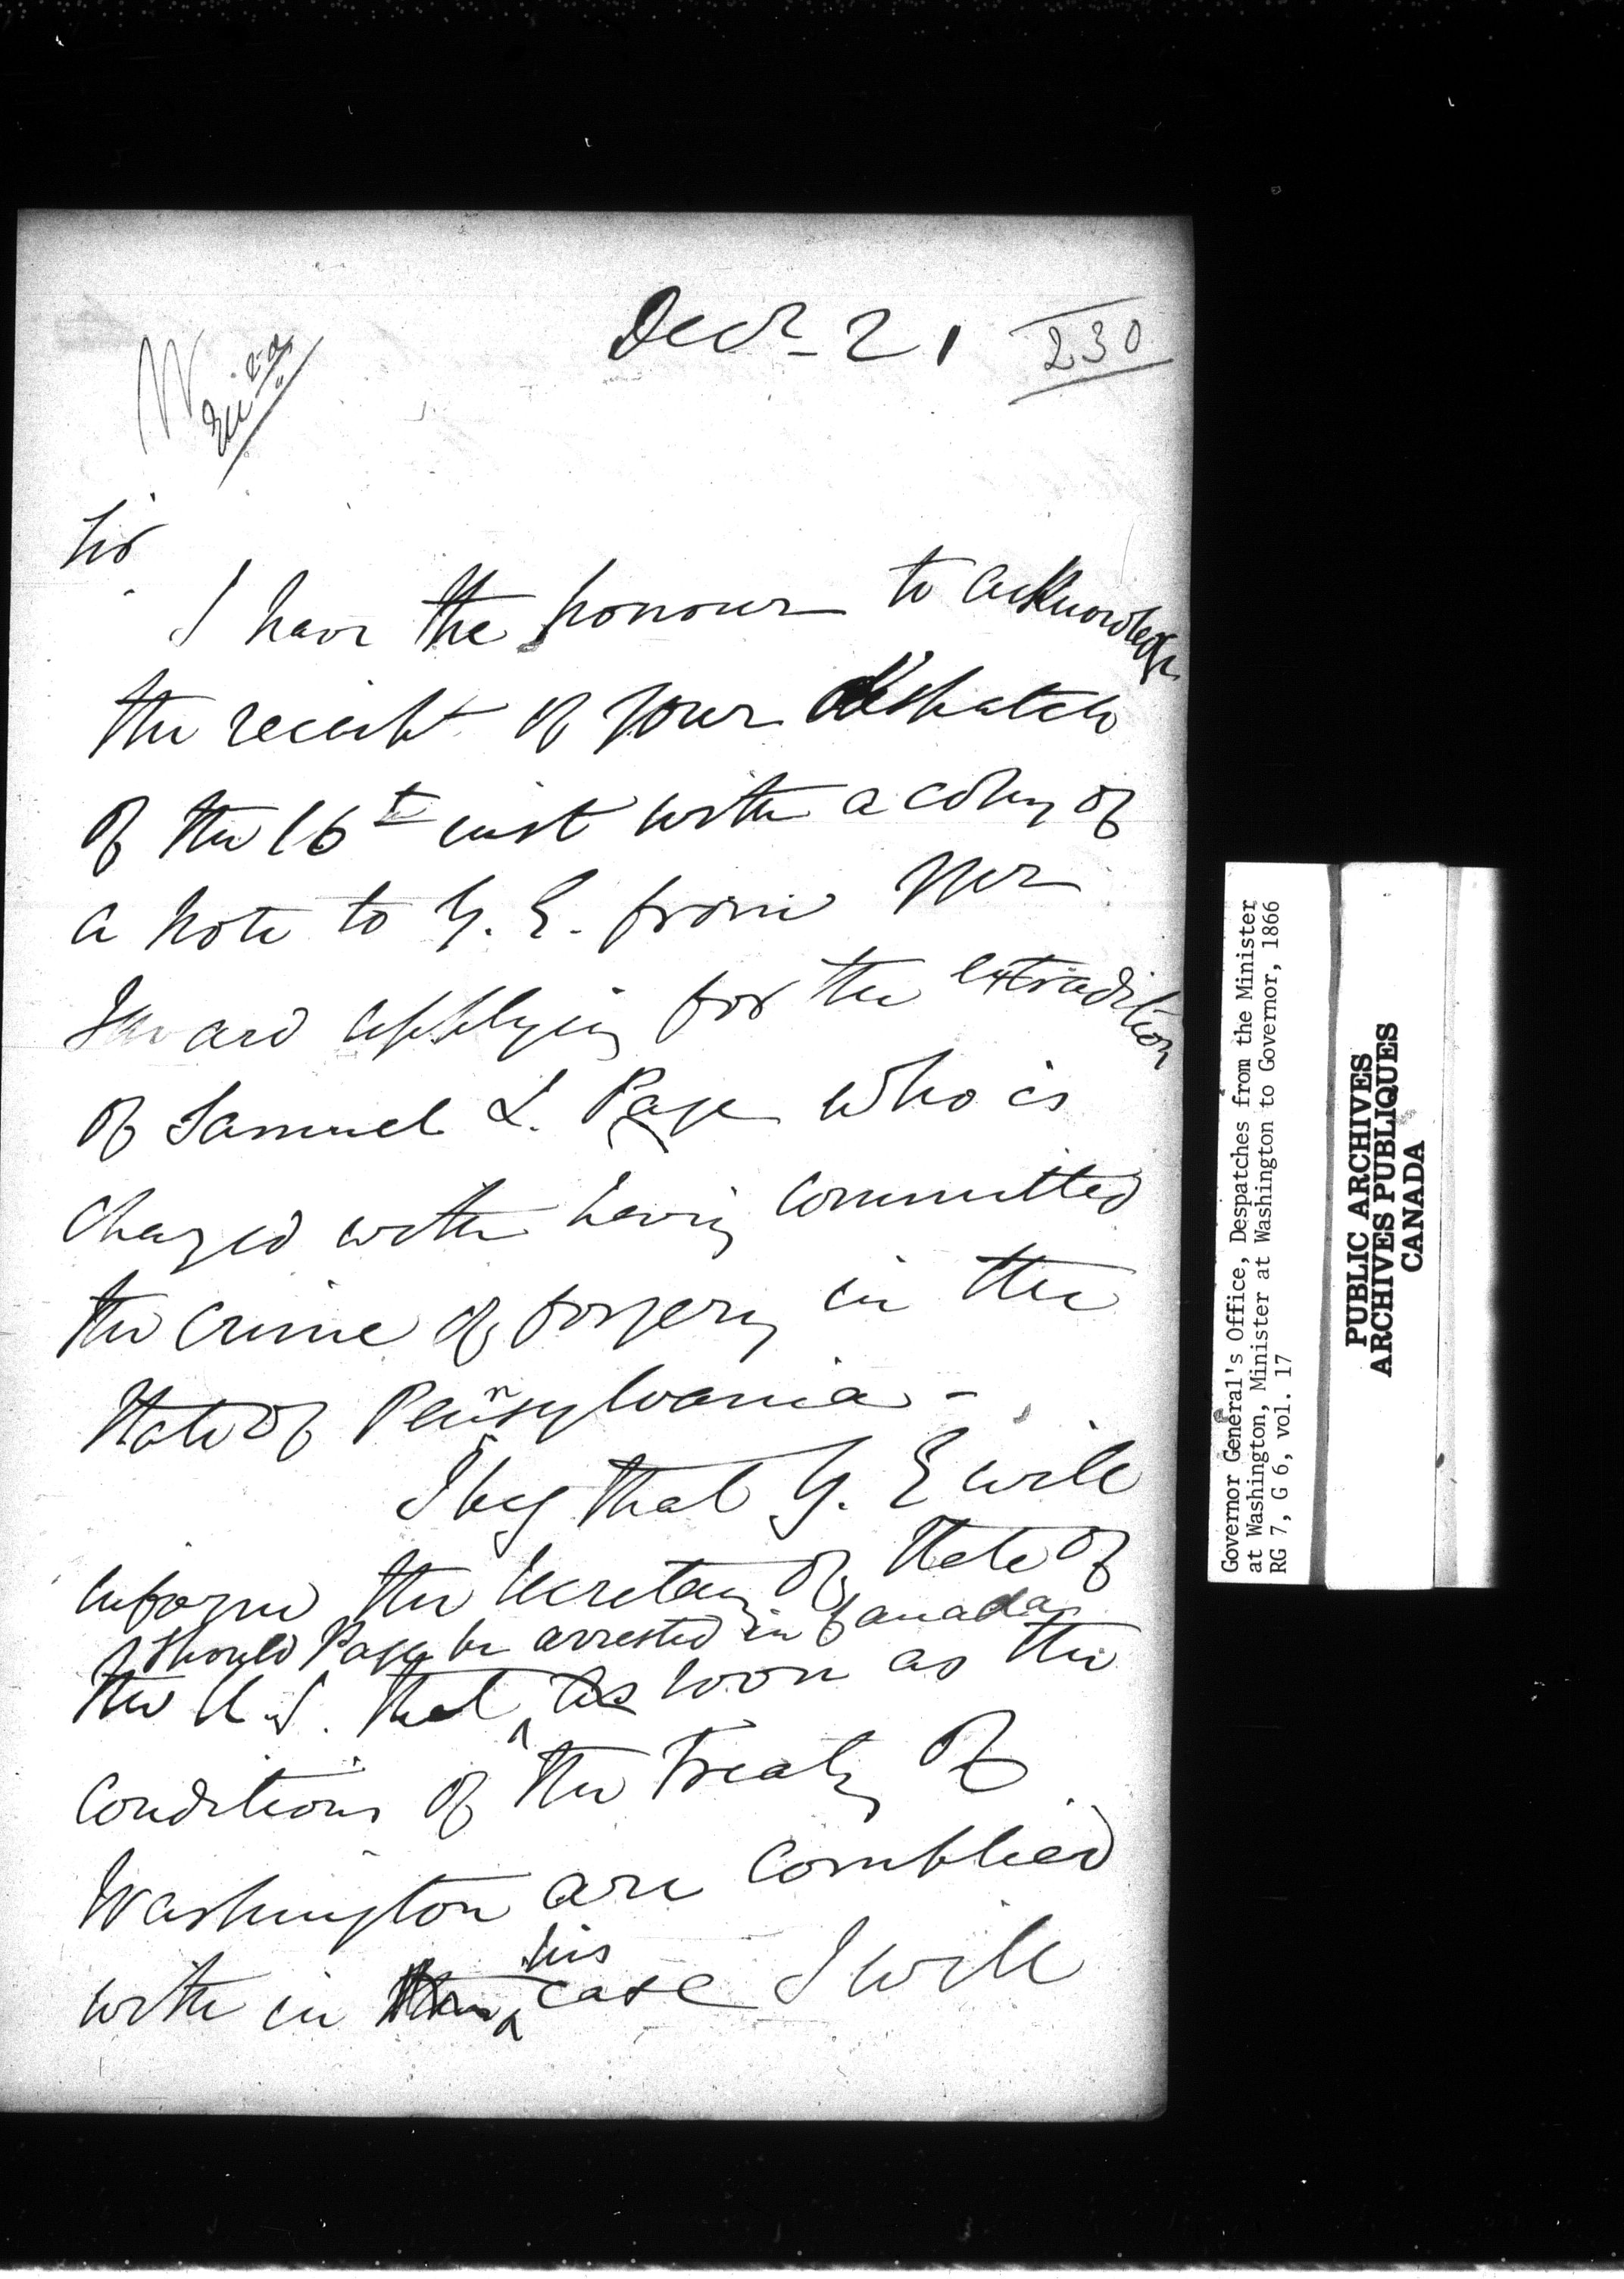 Decr 21
230
Sir
I have the honour to acknowledge
the receipt of your despatch
of the 16t inst with a copy of
a note to Y. E. from Mr
Seward applying for the extradition
of Samuel L. Page who is
charged with having committed
the crime of forgery in the
State of Pennsylvania -
I beg that Y. E will
inform the Secretary of State of
should Page be arrested in Canada
the U.S. that as soon as the
conditions of the Treaty of
Washington are complied
his
with in case I will
Governor General's Office, Despatches from the Minister
at Washington, Minister at Washington to Governor, 1866
RG 7, G 6, vol. 17
PUBLIC ARCHIVES
ARCHIVES PUBLIQUES
CANADA